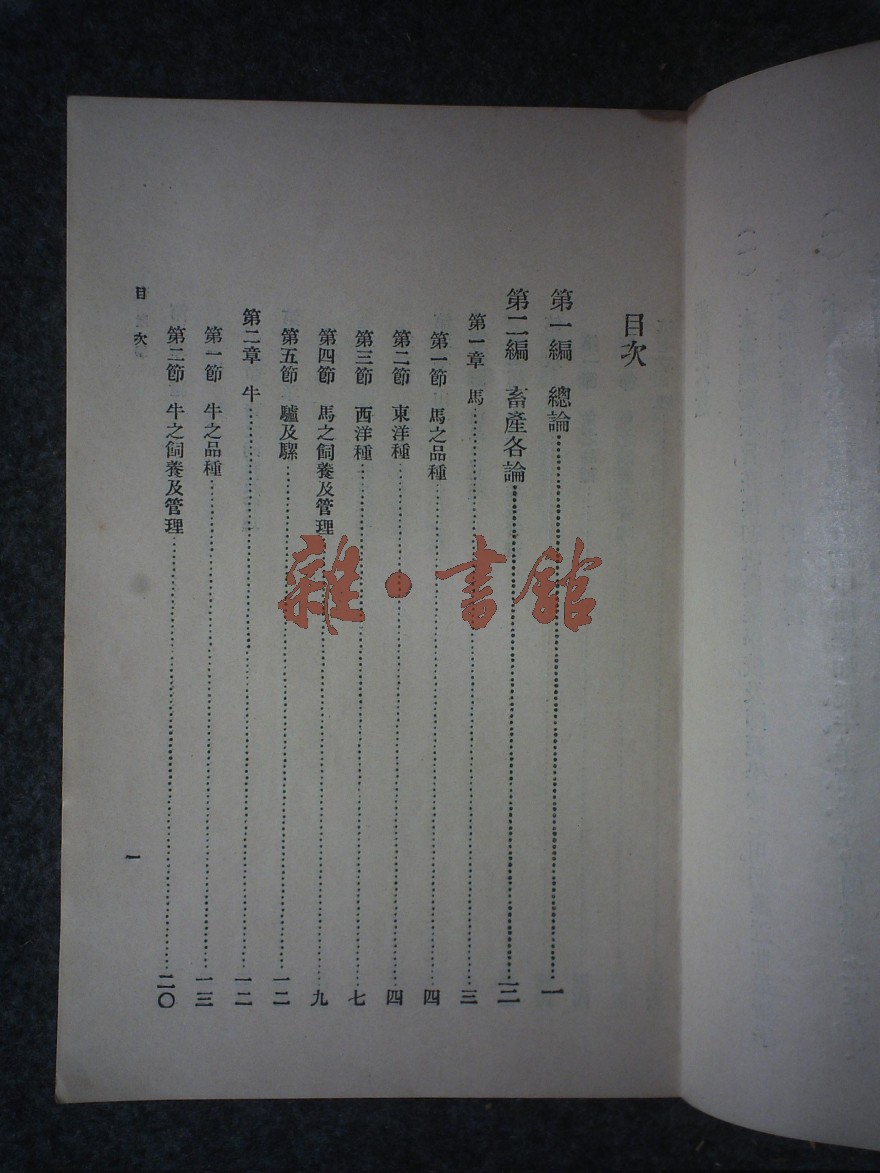 目次
第一編　總論……一
第二編　畜產各論……三
第一章　馬……三
第一節　馬之品種……四
第二節　東洋種……四
第三節　西洋種……七
第四節　馬之飼養及管理……九
第五節　驢及騾……一二
第二章　牛……一二
第一節　牛之品種……一三
第二節　牛之飼養及管理……二〇
目次
一
雜·書舘